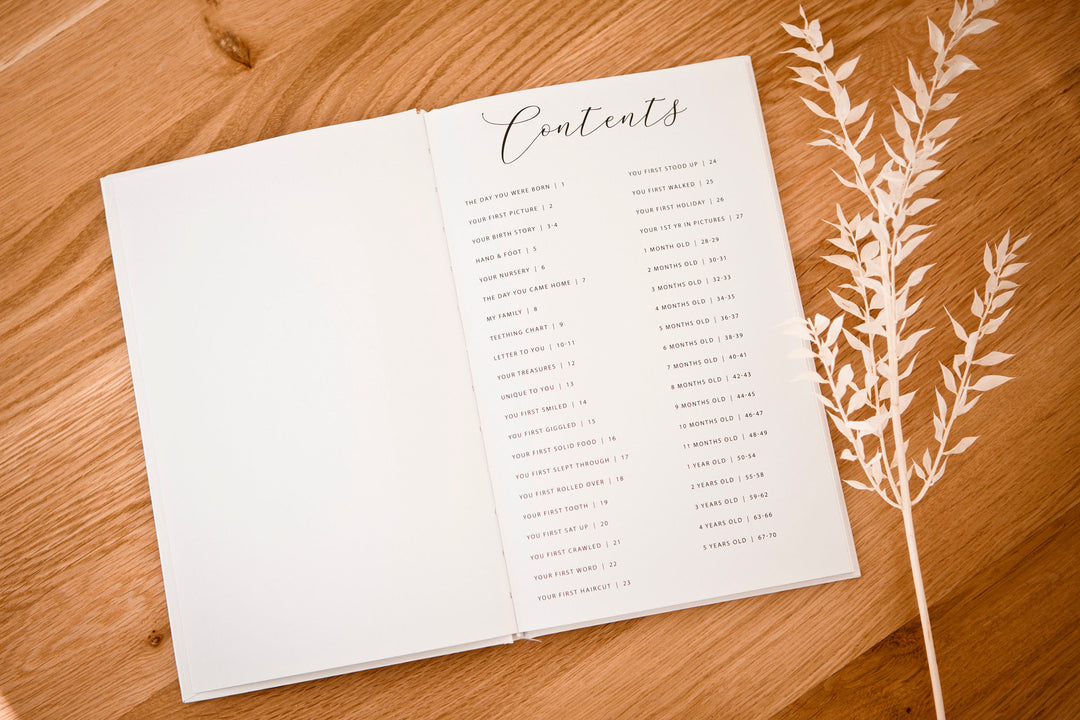 Contents
THE DAY YOU WERE BORN | 1
YOUR FIRST PICTURE | 2
YOUR BIRTH STORY | 3-4
HAND & FOOT | 5
YOUR NURSERY | 6
THE DAY YOU CAME HOME | 7
MY FAMILY | 8
TEETHING CHART | 9
LETTER TO YOU | 10-11
YOUR TREASURES | 12
UNIQUE TO YOU | 13
YOU FIRST SMILED | 14
YOU FIRST GIGGLED | 15
YOUR FIRST SOLID FOOD | 16
YOU FIRST SLEPT THROUGH | 17
YOU FIRST ROLLED OVER | 18
YOUR FIRST TOOTH | 19
YOU FIRST SAT UP | 20
YOU FIRST CRAWLED | 21
YOUR FIRST WORD | 22
YOUR FIRST HAIRCUT | 23
YOU FIRST STOOD UP | 24
YOU FIRST WALKED | 25
YOUR FIRST HOLIDAY | 26
YOUR 1ST YR IN PICTURES | 27
1 MONTH OLD | 28-29
2 MONTHS OLD | 30-31
3 MONTHS OLD | 32-33
4 MONTHS OLD | 34-35
5 MONTHS OLD | 36-37
6 MONTHS OLD | 38-39
7 MONTHS OLD | 40-41
8 MONTHS OLD | 42-43
9 MONTHS OLD | 44-45
10 MONTHS OLD | 46-47
11 MONTHS OLD | 48-49
1 YEAR OLD | 50-54
2 YEARS OLD | 55-58
3 YEARS OLD | 59-62
4 YEARS OLD | 63-66
5 YEARS OLD | 67-70